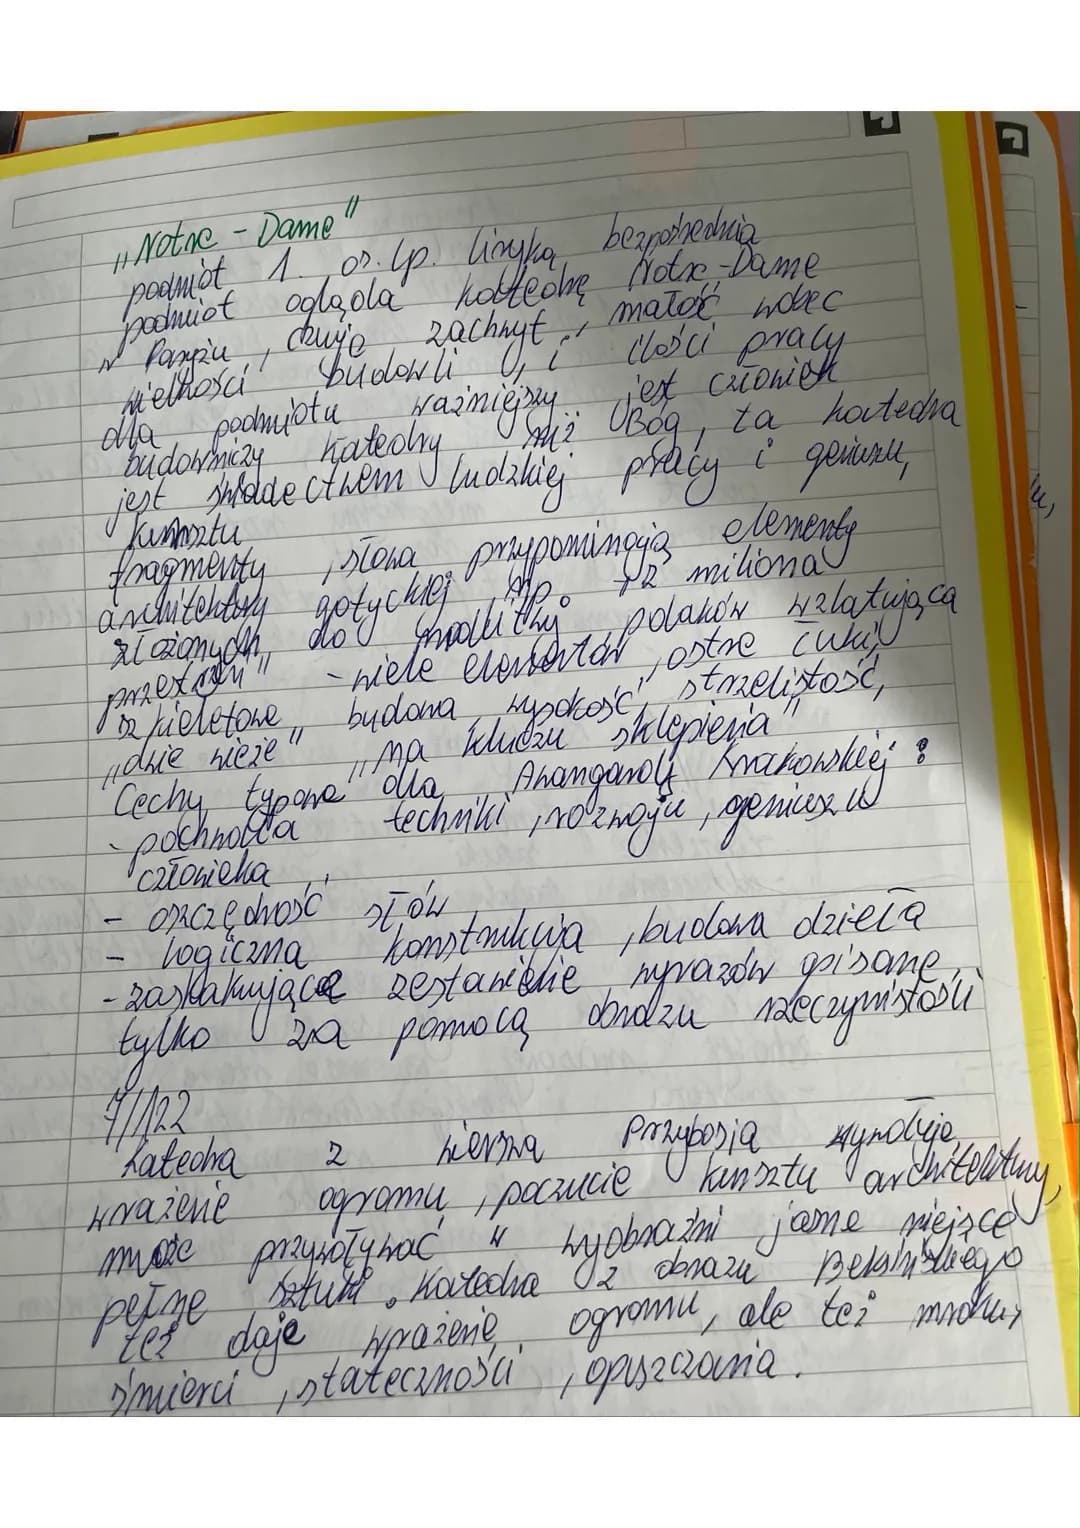 „Notre - Dame"
podmiot 1. os. lp. liryka bezpośrednia
podmiot ogląda katedrę Notre-Dame
w Paryżu, czuje zachwyt, małość wobec
wielkości budowli i ilości pracy
dla podmiotu ważniejszy jest człowiek
budowniczy katedry niż Bóg, ta katedra
jest świadectwem ludzkiej pracy i geniuszu,
kunsztu
fragmenty, słowa przypominają elementy
architektury gotyckiej, np. „z miliona
złożonych do modlitwy polaków wzlatującą
przestrzeń" - wiele elementów, ostre łuki,
szkieletowe budowa wysokość, strzelistość,
„dwie wieże" „na kluczu sklepienia"
Cechy typowe dla Awangardy Krakowskiej:
- pochwała techniki, rozwoju, geniuszu
człowieka
- oszczędność słów
- logiczna konstrukcja, budowa dzieła
- zaskakujące zestawienie wyrazów opisane
tylko za pomocą obrazu rzeczywistości
7/122
Katedra z wiersza Przybosia wywołuje
wrażenie ogromu, poczucie kunsztu architektury,
może przywoływać w wyobraźni jasne miejsce
pełne sztuki. Katedra z obrazu Beksińskiego
też daje wrażenie ogromu, ale też mroku,
śmierci, stateczności, opuszczania.